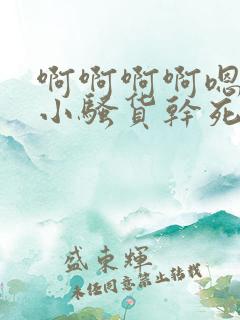 啊啊啊啊嗯
小骚货幹死
盛東輝
未任同意禁止转载